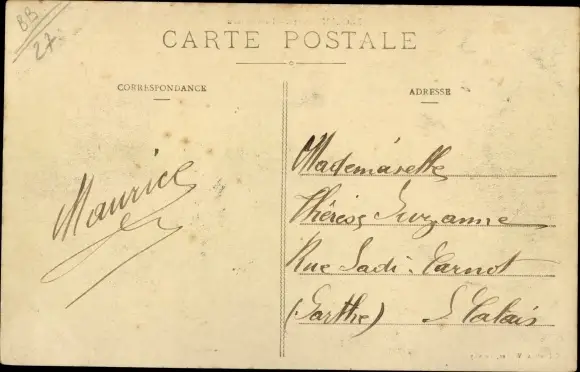 BB
27.
CARTE POSTALE
CORRESPONDANCE
ADRESSE
Maurice
Mademoiselle
Thérèse Suzanne
Rue Sadi-Carnot
(Sarthe) St Calais